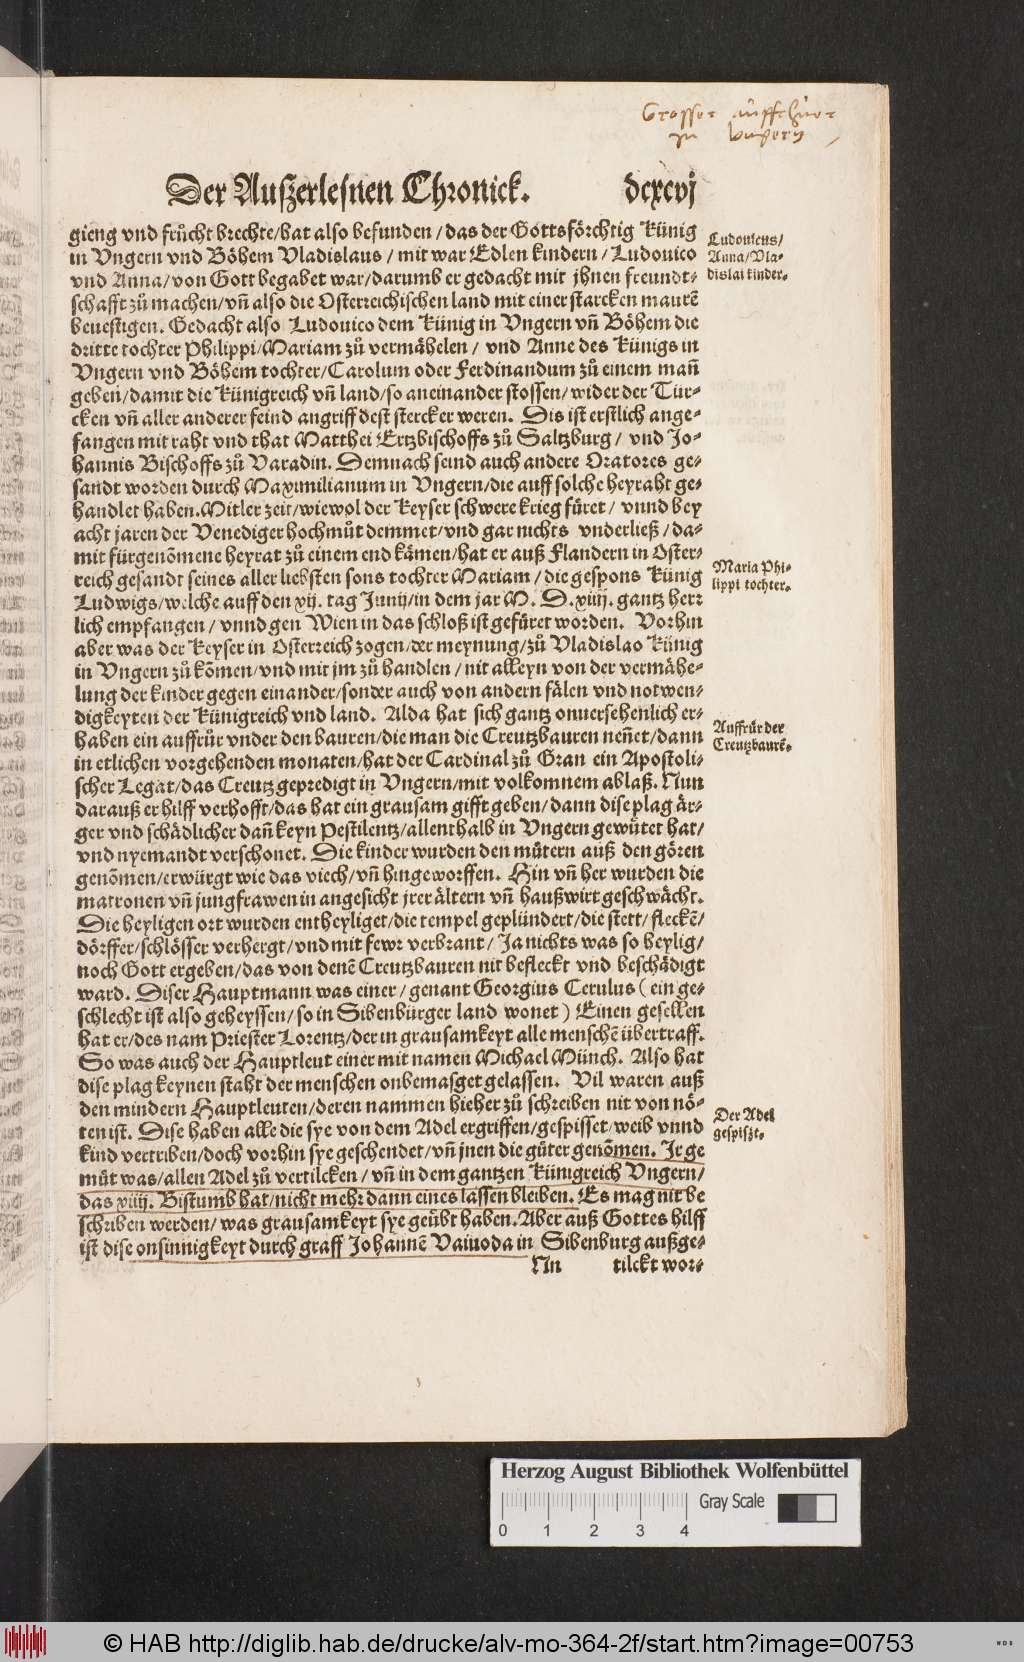 Grosser auffrhuer
in Vngern
Der Auszerlesnen Chronick. dcxcvj
gieng vnd frücht brechte/hat also befunden/das der Gottsförchtig Künig
in Vngern vnd Böhem Vladislaus/mit war Edlen kindern/Ludouico
vnd Anna/von Gott begabet war/darumb er gedacht mit jhnen freundt-
schafft zů machen/vñ also die Osterreichischen land mit einer starcken maurẽ
beuestigen. Gedacht also Ludouico dem Künig in Vngern vñ Böhem die
dritte tochter Philippi/Mariam zů vermähelen/ vnd Anne des Künigs in
Vngern vnd Böhem tochter/Carolum oder Ferdinandum zů einem mañ
geben/damit die Künigreich vñ land/so aneinander stossen/wider der Tür-
cken vñ aller anderer feind angriff dest stercker weren. Dis ist erstlich ange-
fangen mit raht vnd that Matthei Ertzbischoffs zů Saltzburg/ vnd Jo-
hannis Bischoffs zů Varadin. Demnach seind auch andere Oratores ge-
sandt worden durch Maximilianum in Vngern/die auff solche heyraht ge-
handlet haben. Mitler zeit/wiewol der Keyser schwere krieg füret/ vnnd bey
acht jaren der Venediger hochmůt demmet/vnd gar nichts vnderließ/da-
mit fürgenõmene heyrat zů einem end kämen/hat er auß Flandern in Oster-
reich gesandt seines aller liebsten sons tochter Mariam/die gespons Künig
Ludwigs/welche auff den xij. tag Junij/in dem jar M. D. xiiij. gantz herr
lich empfangen/ vnnd gen Wien in das schloß ist gefüret worden. Vorhin
aber was der Keyser in Osterreich zogen/der meynung/zů Vladislao Künig
in Vngern zů kõmen/vnd mit jm zů handlen/nit alleyn von der vermähe-
lung der kinder gegen einander/sonder auch von andern fälen vnd notwen-
digkeyten der Künigreich vnd land. Alda hat sich gantz onuersehenlich er-
haben ein auffrůr vnder den bauren/die man die Creutzbauren neñet/dann
in etlichen vorgehenden monaten/hat der Cardinal zů Gran ein Apostoli-
scher Legat/das Creutz gepredigt in Vngern/mit volkomnem ablaß. Nun
darauß er hilff verhofft/das hat ein grausam gifft geben/dann dise plag är-
ger vnd schädlicher dañ keyn Pestilentz/allenthalb in Vngern gewütet hat/
vnd nyemandt verschonet. Die kinder wurden den mütern auß den gören
genõmen/erwürgt wie das viech/vñ hingeworffen. Hin vñ her wurden die
matronen vñ jungfrawen in angesicht jrer ältern vñ haußwirt geschwächt.
Die heyligen ort wurden entheyliget/die tempel geplündert/die stett/fleckẽ/
dörffer/schlösser verhergt/vnd mit fewr verbrant/ Ja nichts was so heylig/
noch Gott ergeben/das von denẽ Creutzbauren nit befleckt vnd beschädigt
ward. Diser Hauptmann was einer/ genant Georgius Cerulus ( ein ge-
schlecht ist also geheyssen/so in Sibenbürger land wonet ) Einen gesellen
hat er/des nam Priester Lorentz/der in grausamkeyt alle menschẽ übertraff.
So was auch der Hauptleut einer mit namen Michael Münch. Also hat
dise plag keynen staht der menschen onbemasget gelassen. Vil waren auß
den mindern Hauptleuten/deren nammen hieher zů schreiben nit von nö-
ten ist. Dise haben alle die sye von dem Adel ergriffen/gespisset/weib vnnd
kind vertriben/doch vorhin sye geschendet/vñ jnen die güter genõmen. Jr ge
müt was/allen Adel zů vertilcken/ vñ in dem gantzen Künigreich Vngern/
das xiiij. Bistumb hat/nicht mehr dann eines lassen bleiben. Es mag nit be
schriben werden/ was grausamkeyt sye geübt haben. Aber auß Gottes hilff
ist dise onsinnigkeyt durch graff Johannẽ Vaiuoda in Sibenburg außge-
Nn tilckt wor-
Ludouicus/
Anna/Vla-
dislai kinder.
Maria Phi-
lippi tochter.
Auffrůr der
Creutzbaurẽ.
Der Adel
gespiszt.
Herzog August Bibliothek Wolfenbüttel
Gray Scale
0 1 2 3 4
© HAB http://diglib.hab.de/drucke/alv-mo-364-2f/start.htm?image=00753